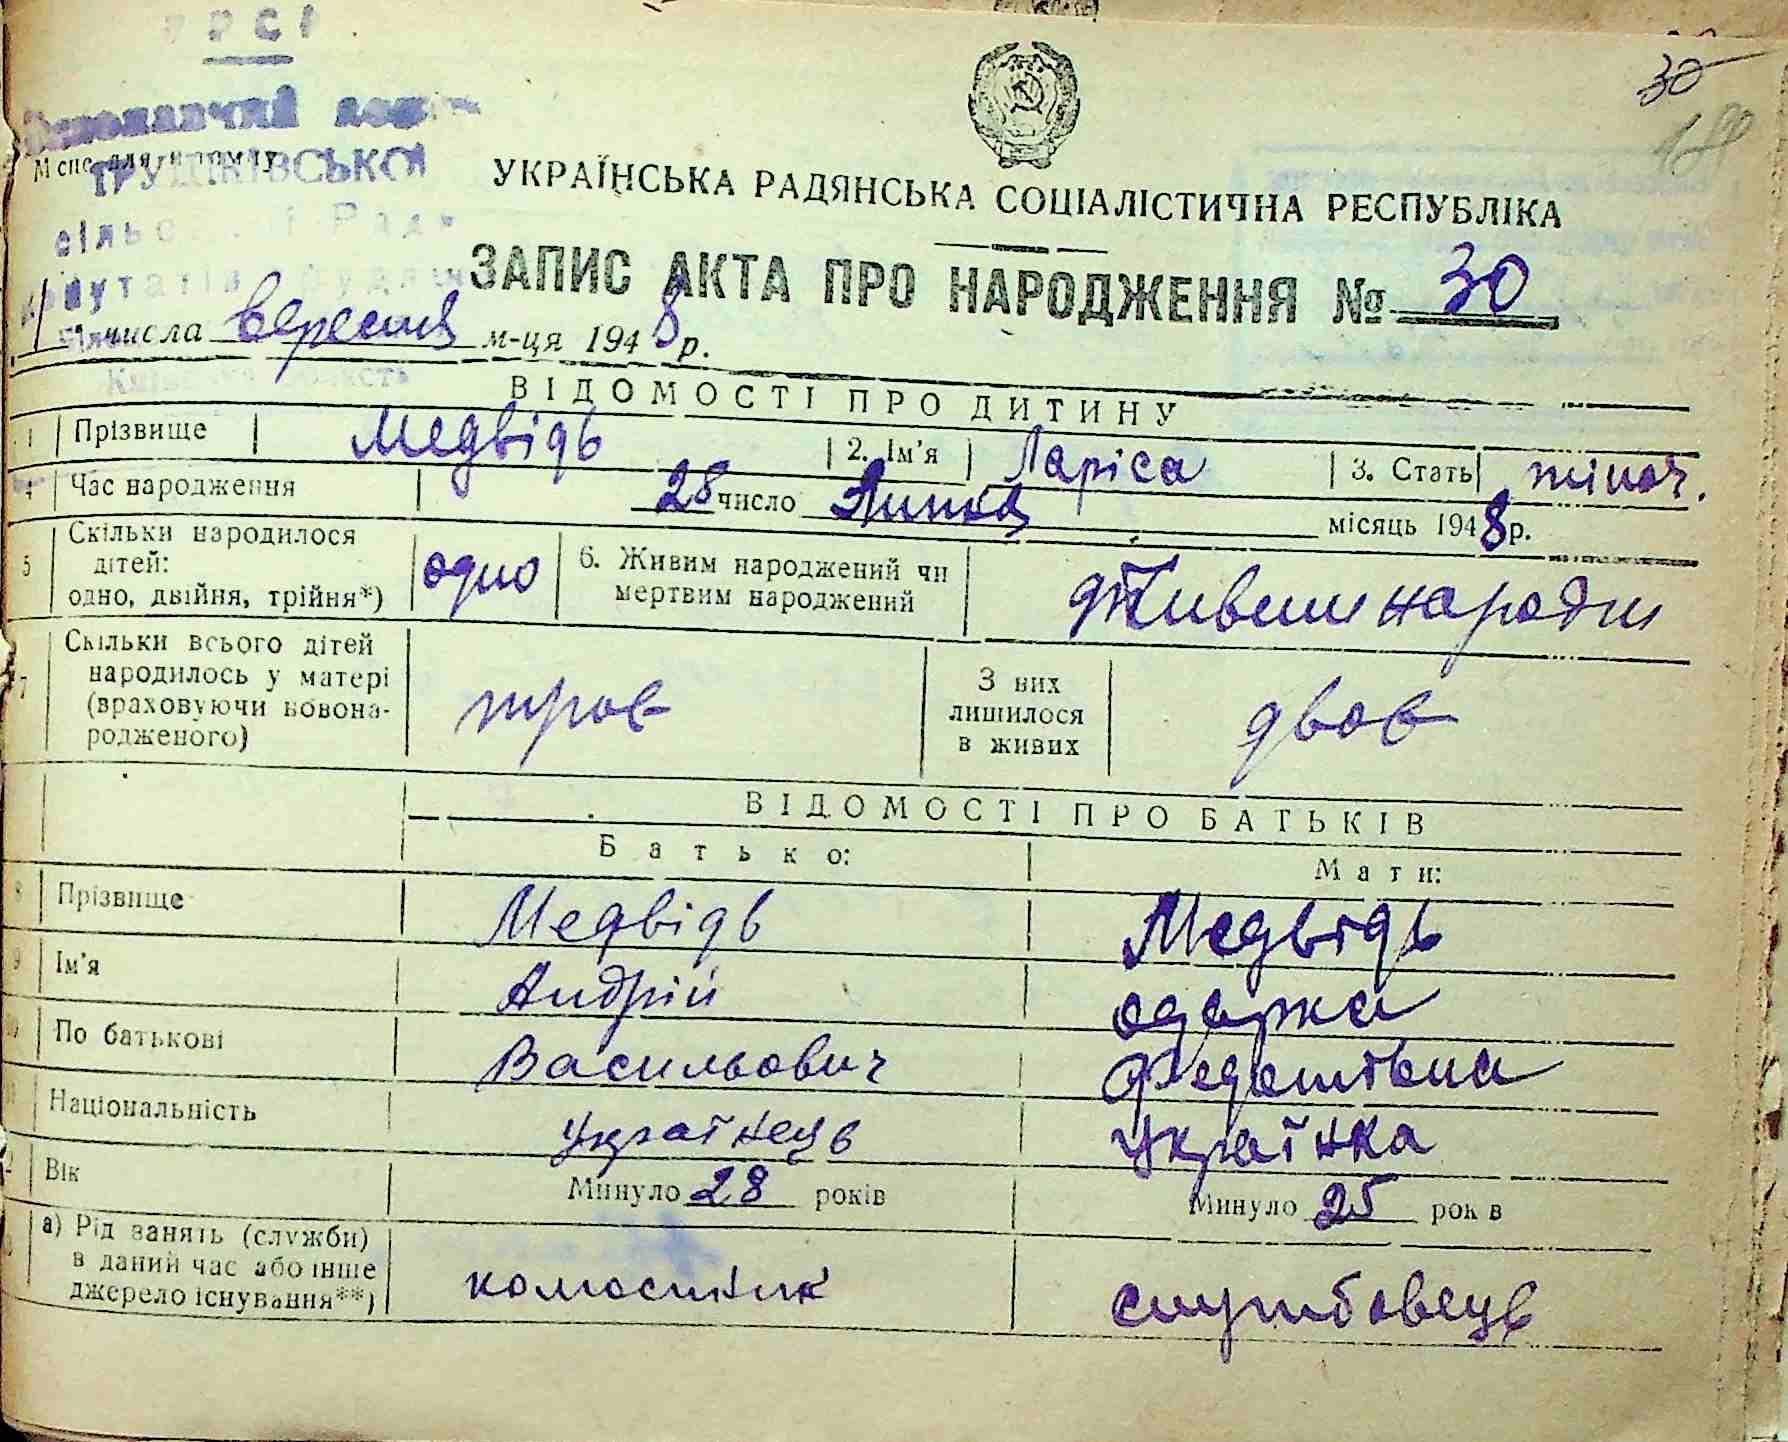 РСР
30
18
Виконавчий
Місце для штампу
ТРУШКІВСЬКОЇ
УКРАЇНСЬКА РАДЯНСЬКА СОЦІАЛІСТИЧНА РЕСПУБЛІКА
ЗАПИС АКТА ПРО НАРОДЖЕННЯ № 30
1 числа вересня м-ця 1948 р.
ВІДОМОСТІ ПРО ДИТИНУ
1 Прізвище Медвідь 2. Ім'я Ларіса 3. Стать жіноч.
4 Час народження 28 число Липня місяць 1948 р.
5 Скільки народилося дітей: одно, двійня, трійня*) одно 6. Живим народжений чи мертвим народжений Живим народж
7 Скільки всього дітей народилось у матері (враховуючи новонародженого) троє З них лишилося в живих двоє
ВІДОМОСТІ ПРО БАТЬКІВ
Батько: Мати:
8 Прізвище Медвідь Медвідь
9 Ім'я Андрій Одарка
По батькові Васильович Федотівна
Національність Українець Українка
Вік Минуло 28 років Минуло 25 років
а) Рід занять (служби) в даний час або інше джерело існування**) колгоспник службовець